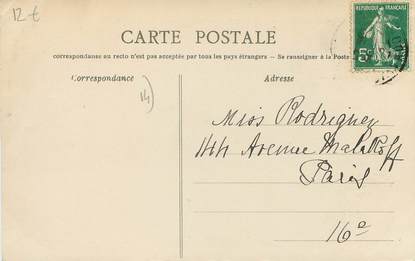 12 €
RÉPUBLIQUE FRANÇAISE
CARTE POSTALE
correspondance au recto n'est pas acceptée par tous les pays étrangers — Se renseigner à la Poste
Correspondance
Adresse
14)
Miss Rodriguez
144 Avenue Malakoff
Paris
16e